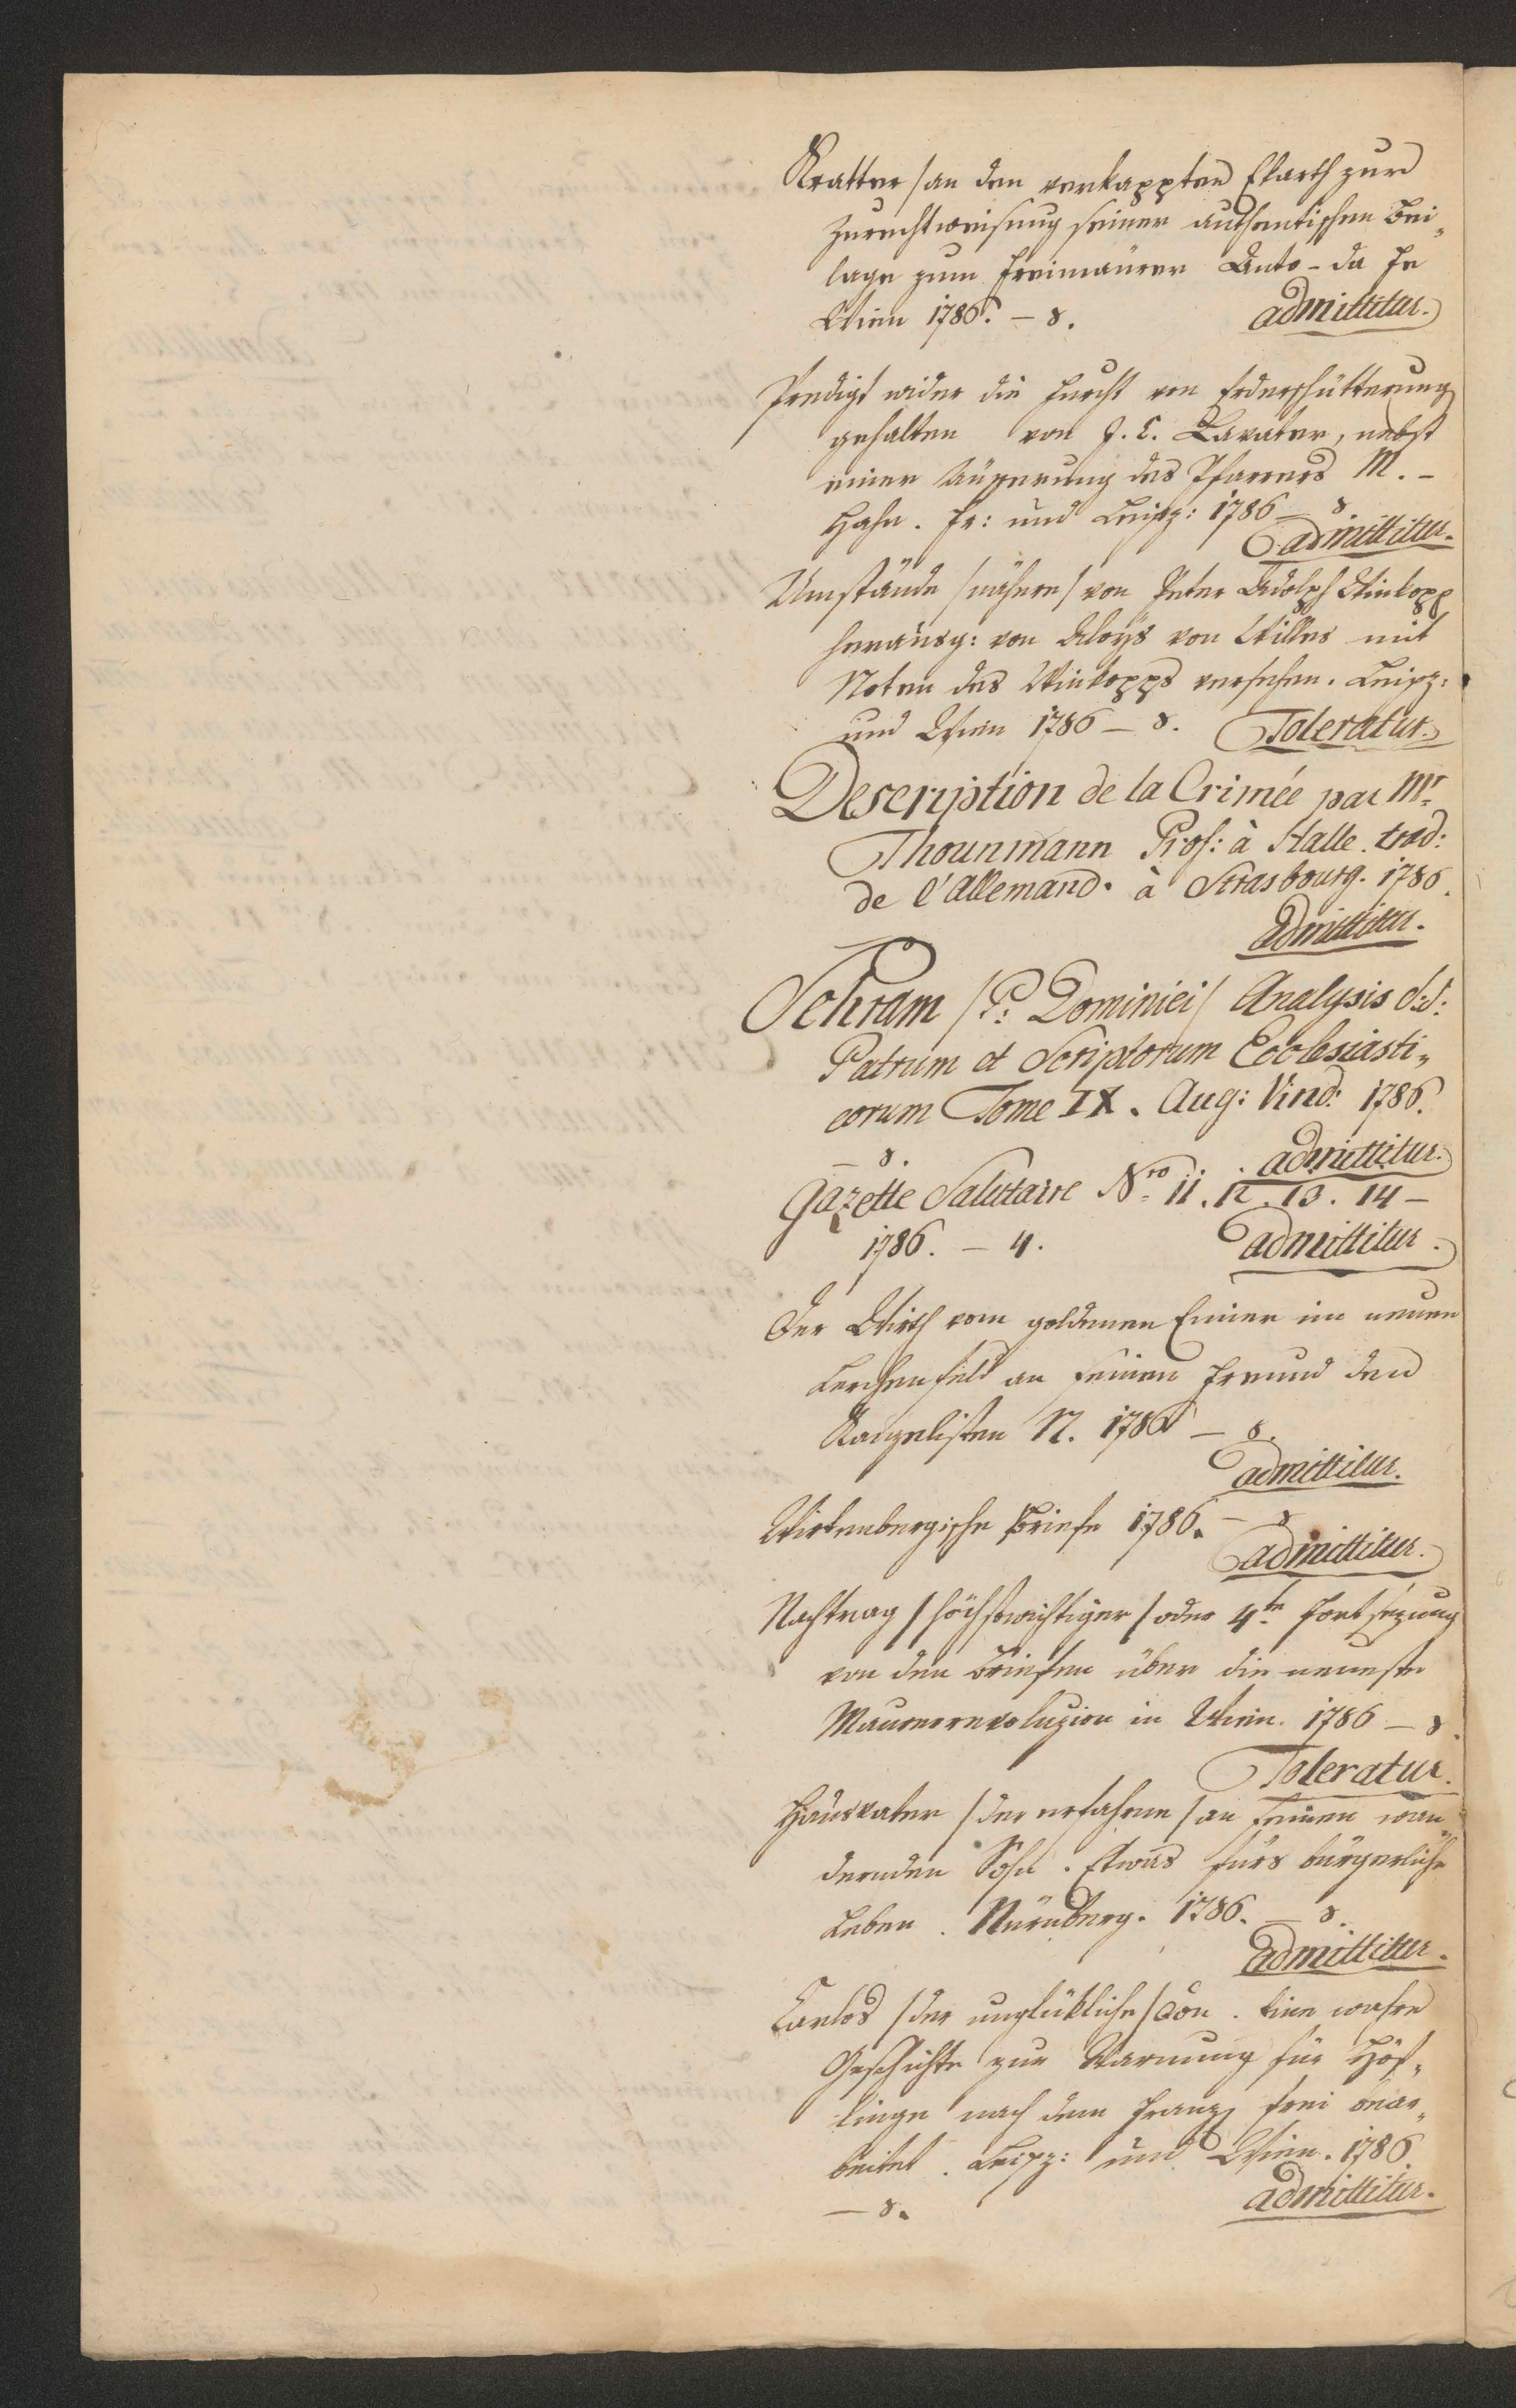 Kratter / an den verkappten Ekarth zur
Zurechtweisung seiner authentischen Bei„
lage zum Freimaurer Auto-da Fe
Wien 1786. – 8. admittitur.
Predigt wider die Furcht von Erderschütterung
gehalten von J. C. Lavater, nebst
einer Äusserung des Pfarrers M. –
Hahn. Fr: und Leipz: 1786 – 8
admittitur.
Umstände / nähere / von Peter Adolph Winkopp
herausg: von Aloys von Willer mit
Noten des Winkopps versehen. Leipz:
und Wien 1786 – 8. Toleratur.
Description de la Crimée par Mr.
Thounmann Prof: à Halle. trad:
de l'Allemand. à Strasbourg. 1786.
Admittitur.
Schram / P: Dominici / Analysis S:S:
Patrum et Scriptorum Ecclesiasti„
corum Tome IX. Aug: Vind: 1786.
– 8. admittitur.
Gazette Salutaire Nro. 11. 12. 13. 14 –
1786. – 4. admittitur.
Der Wirth vom goldenen Einer im neuen
Lerchenfeld an seinen Freund den
N. 1786 – 8.
admittitur.
Wirtenbergische Briefe 1786. – 8
admittitur.
Nachtrag / höchstwichtiger / oder 4te. Fortsezung
von den Briefen über die neueste
Maurerrevoluzion in Wien. 1786 – 8.
Toleratur.
Hausvater / der erfahrne / an seinen wan„
dernden Sohn. Etwas fürs bürgerliche
Leben. Nürnberg. 1786. – 8.
Admittitur.
Carlos / der unglükliche / Don. Eine wahre
Geschichte zur Warnung für Höf„
linge nach dem Franz frei bear„
beitet. Leipz: und Wien. 1786.
– 8. admittitur.